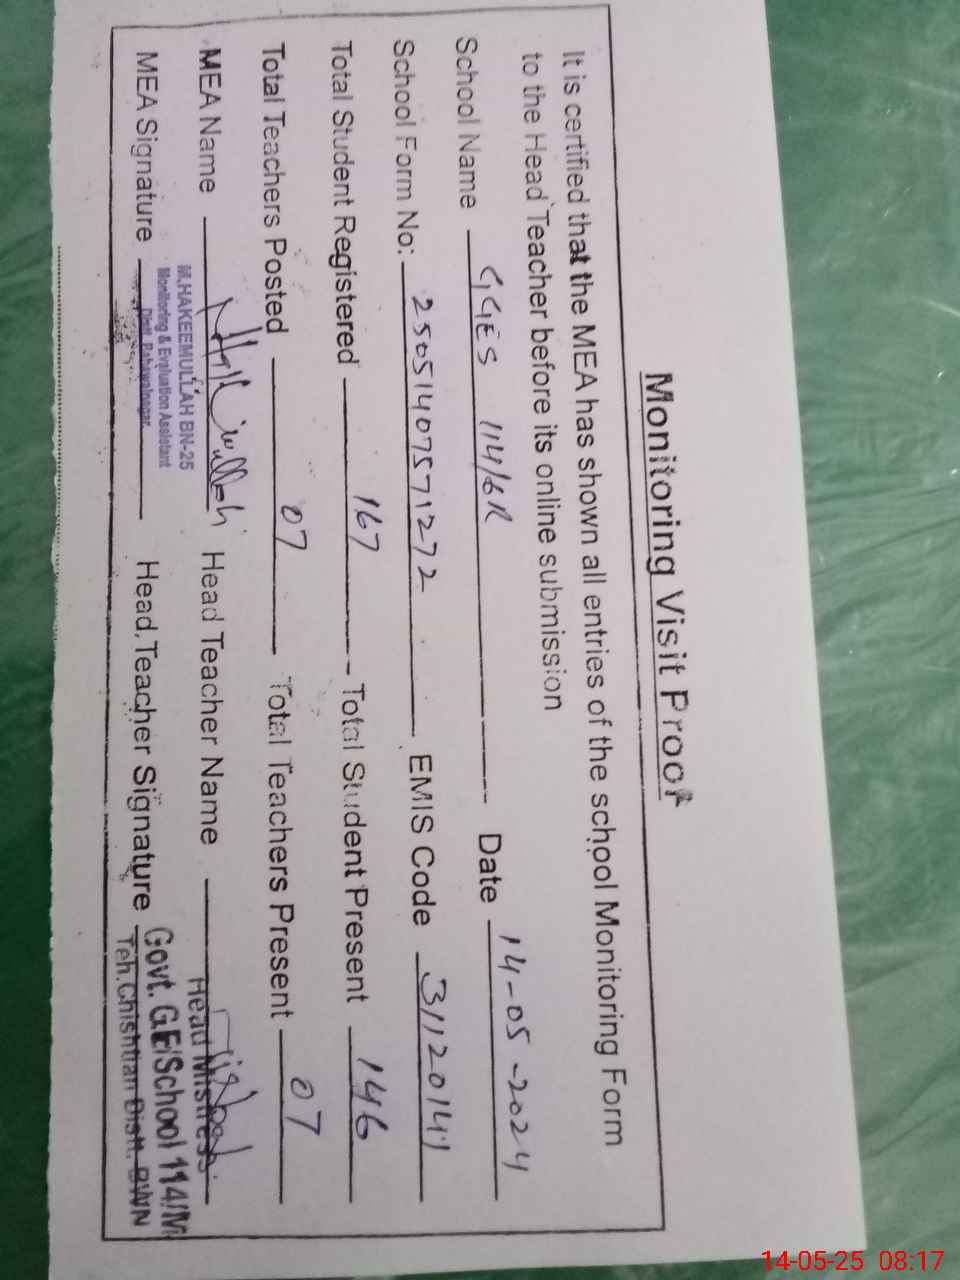 Monitoring Visit Proof
It is certified that the MEA has shown all entries of the school Monitoring Form
to the Head Teacher before its online submission
School Name GGES 114/6R Date 14-05-2024
School Form No: 25051407571272 EMIS Code 31120141
Total Student Registered 167 Total Student Present 146
Total Teachers Posted 07 Total Teachers Present 07
MEA Name Head Teacher Name
M.HAKEEMULLAH BN-25
Monitoring & Evaluation Assistant
Distt. Bahawalnagar.
MEA Signature Head Teacher Signature
Head Mistress
Govt. GE/School 114/M
Teh. Chishtian Distt. BWN
14-05-25 08:17